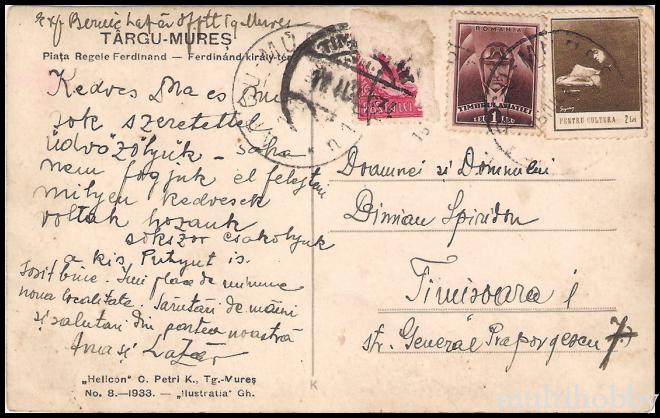 Exp Bernic Lazăr Tg Mureș
TÂRGU-MUREȘ
Piața Regele Ferdinand — Ferdinánd király-tér
Kedves Dna es Dnu
sok szeretettel
üdvözöljük – soha
nem fogjuk el felejteni
milyen kedvesek
voltak hozánk
sokszor csokoljuk
a kis Putyut is.
Sosit bine. Îmi place de minune
noua localitate. Sărutări de mâini
și salutări din partea noastră
Ana și Lazăr
„Helicon" C. Petri K., Tg.-Mureș
No. 8.—1933. — „Ilustratia" Gh.
K
ROMANIA
TIMBRUL AVIAȚIEI
LEU 1 LEU
PENTRU CULTURA 2 Lei
Doamnei și Domnului
Dimian Spiridon
Timisoara I
str. General Praporgescu 7.
multihobby